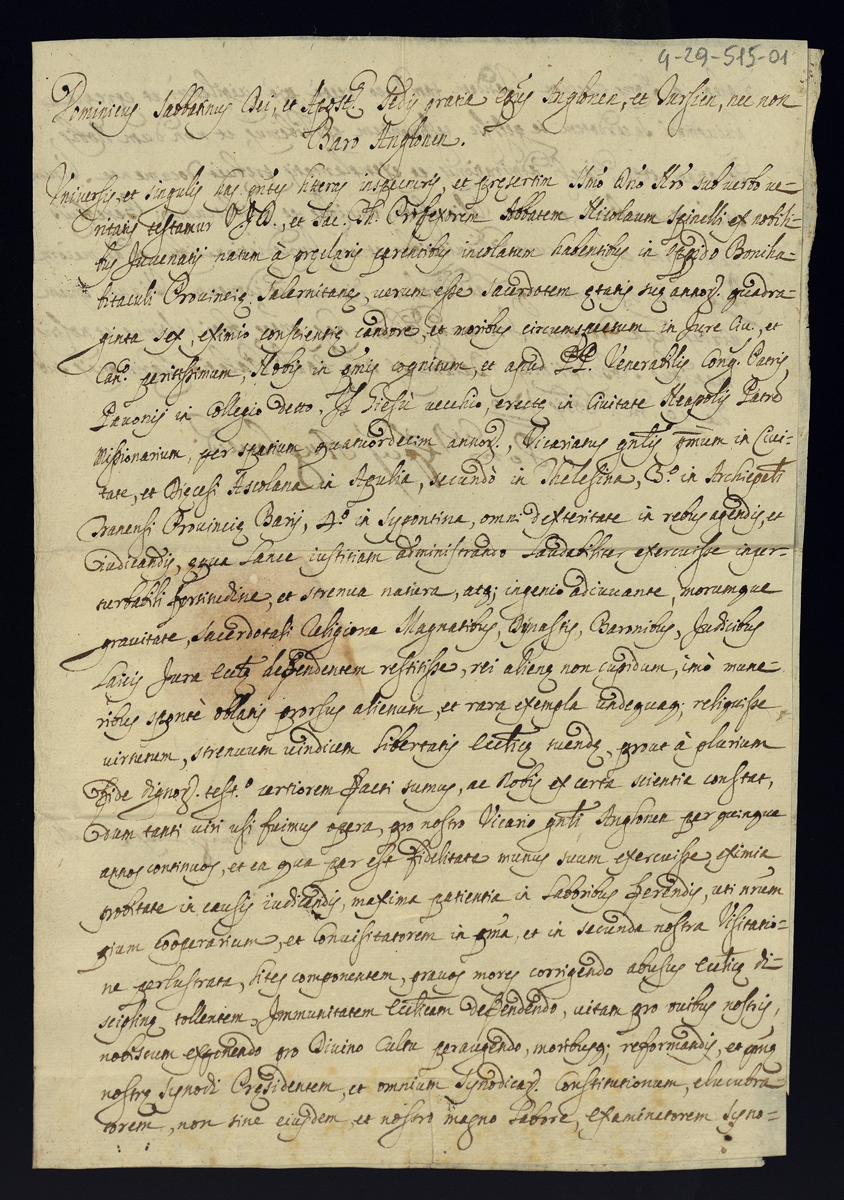 4-29-515-01
Dominicus Sabbatinus Dei, et Apost. Sedis gratia Ep̃us Anglonen, et Tursien, nec non
Baro Anglonen.
Universis, et singulis has p̃ntes literas inspecturis, et presertim Ill̃mo Dño Nr̃o sub verbo ve-
ritatis testamur V.J.D., et Sac. Th. Professorem Abbatem Nicolaum Spinelli ex nobili-
bus Juvenatij natum à preclaris parentibus incolatum habentibus in Oppido Boniha-
bitaculi Provincię Salernitanę, verum esse Sacerdotem ętatis suę annor. quadra-
ginta sex, eximio conscientię candore, et moribus circumspectum in Jure Civ., et
Can. peritissimum, Nobis in om̃is cognitum, et apud PP. Venerabilis Cong. Patris
Pavonis in Collegio detto, Il Giesù vecchio, erectę in Civitate Neapolis Patrū
Missionarium, per spatium quatuordecim annor., Vicariatus gñlis primum in Civi-
tate, et Diecesi Ascolana in Apulia, secundò in Thelesina, 3.o in Archiepali
Tranensi Provincię Barij, 4.o in Sypontina, omni dexteritate in rebus agendis, et
iudicandis, ęqua lance iustitiam administrando laudabiliter exercuisse imper-
turbabili fortitudine, et strenua natura, atq; ingenio adiuvante, morumque
gravitate, Sacerdotali Religione Magnatibus, Dynastis, Baronibus, Judicibus
Laicis Jura Eccl̃ę defendentem restitisse, rei alienę non cupidum, imò mune-
ribus spontè oblatis prorsus alienum, et rara exempla undequaq; reliquisse
virtutum, strenuum vindicem libertatis Eccl̃icę tuendę, prout à plurium
fide dignor. test.o certiorem facti sumus, ac Nobis ex certa scientia constat,
dum tanti viri usi fuimus opera, pro nostro Vicario gñli Anglonen per quinque
annos continuos, et ea qua par est fidelitate munus suum exercuisse, eximia
probitate in causis iudicandis, maxima patientia in laboribus ferendis, uti nr̃um
pium Cooperarium, et Convisitatorem in pr̃ma, et in secunda nostra Visitatio-
ne perlustrata, lites componentem, pravos mores corrigendo abusus Eccl̃icę di-
sciplinę tollentem, Immunitatem Eccl̃icam defendendo, vitam pro ovibus nostris,
nobiscum exponendo pro Divino Cultu peraugendo, moribusq; reformandis, et primę
nostrę Synodi Pręsidentem, et omnium Synodicar. Constitutionum, elucubra-
torem, non sine eiusdem, et nostro magno labore, Examinatorem Syno-